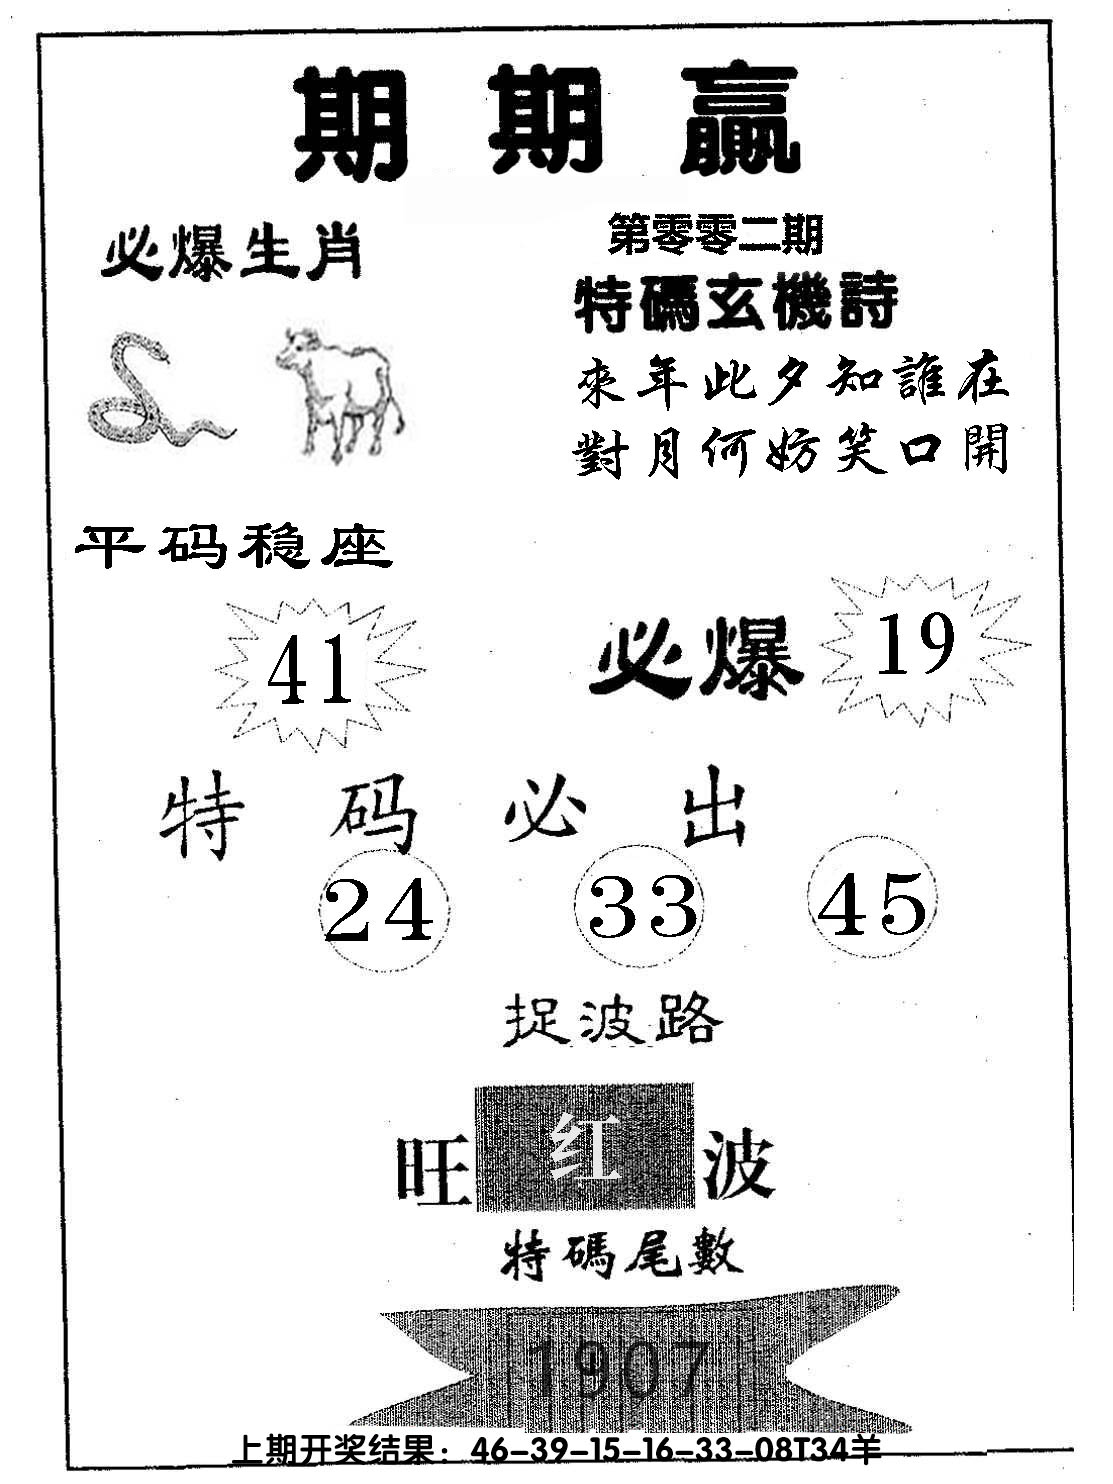 期期赢
必爆生肖
第零零二期
特碼玄機詩
來年此夕知誰在
對月何妨笑口開
平码稳座
41
必爆
19
特码必出
24 33 45
捉波路
旺红波
特碼尾數
1907
上期开奖结果：46-39-15-16-33-08T34羊